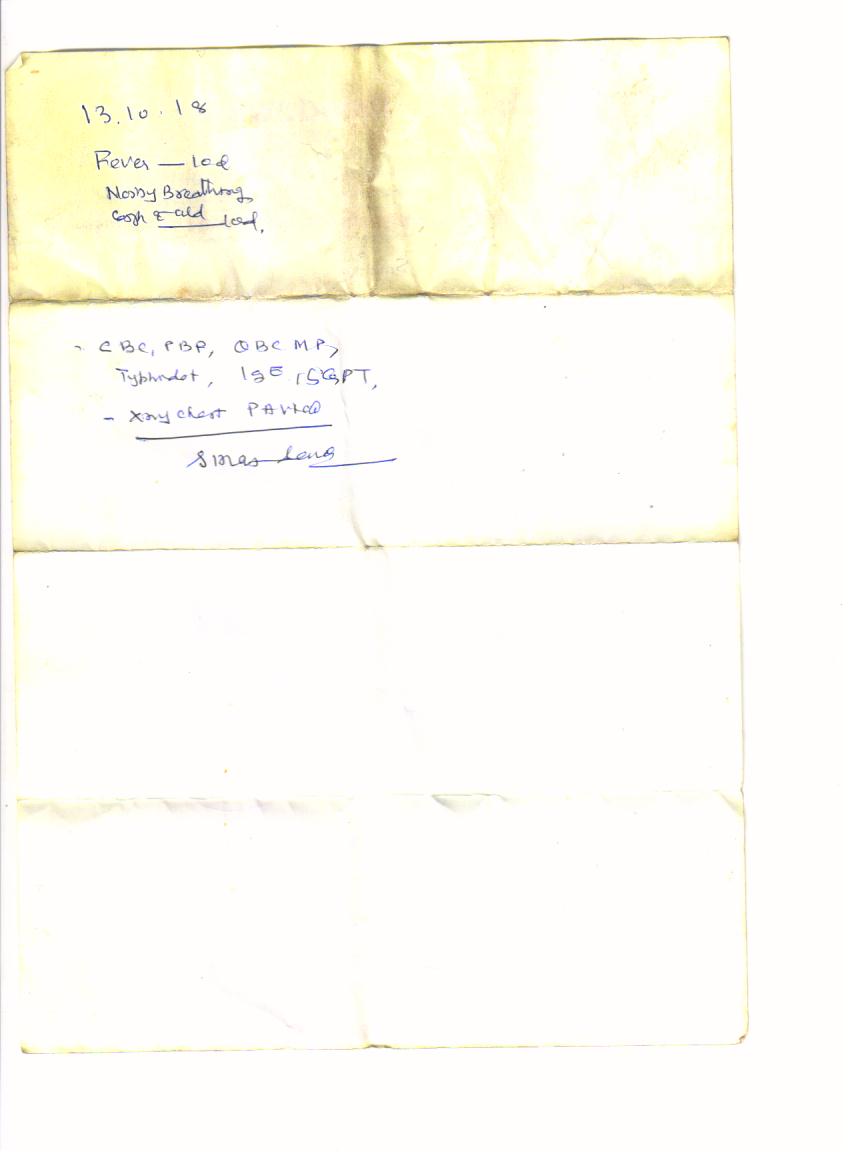 13.10.18
Fever — 10d
Noisy Breathing
Cough & cold 10d,
- CBC, PBP, QBC MP,
Typhidot, IgE, SGPT,
- Xray chest PA View